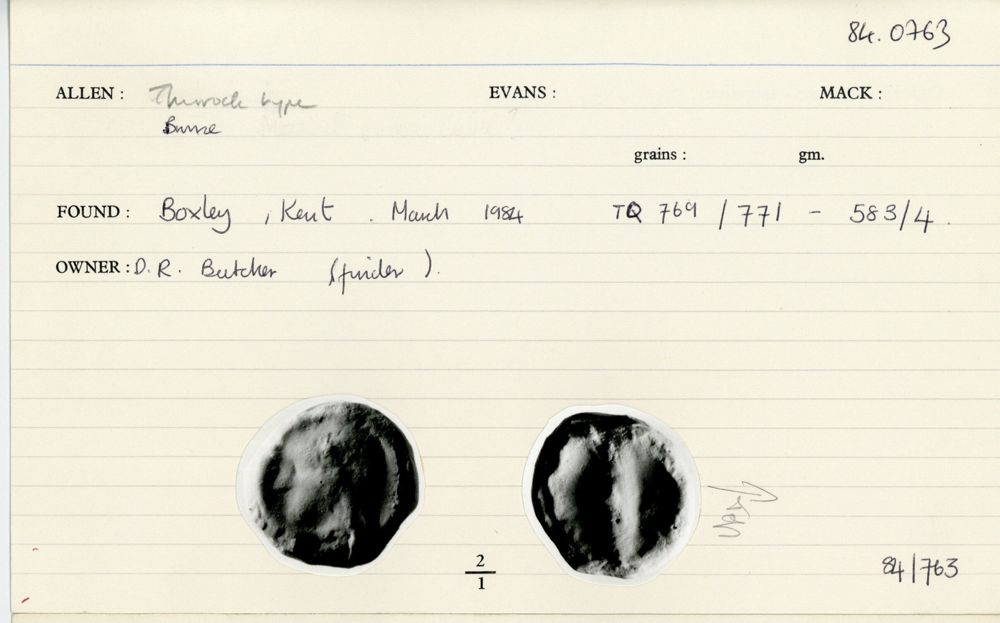 84.0763
ALLEN : Thurrock type EVANS : MACK :
Bronze
grains : gm.
FOUND : Boxley, Kent. March 1984 TQ 769 / 771 - 583/4.
OWNER : D. R. Butcher (finder).
2
1
84/763